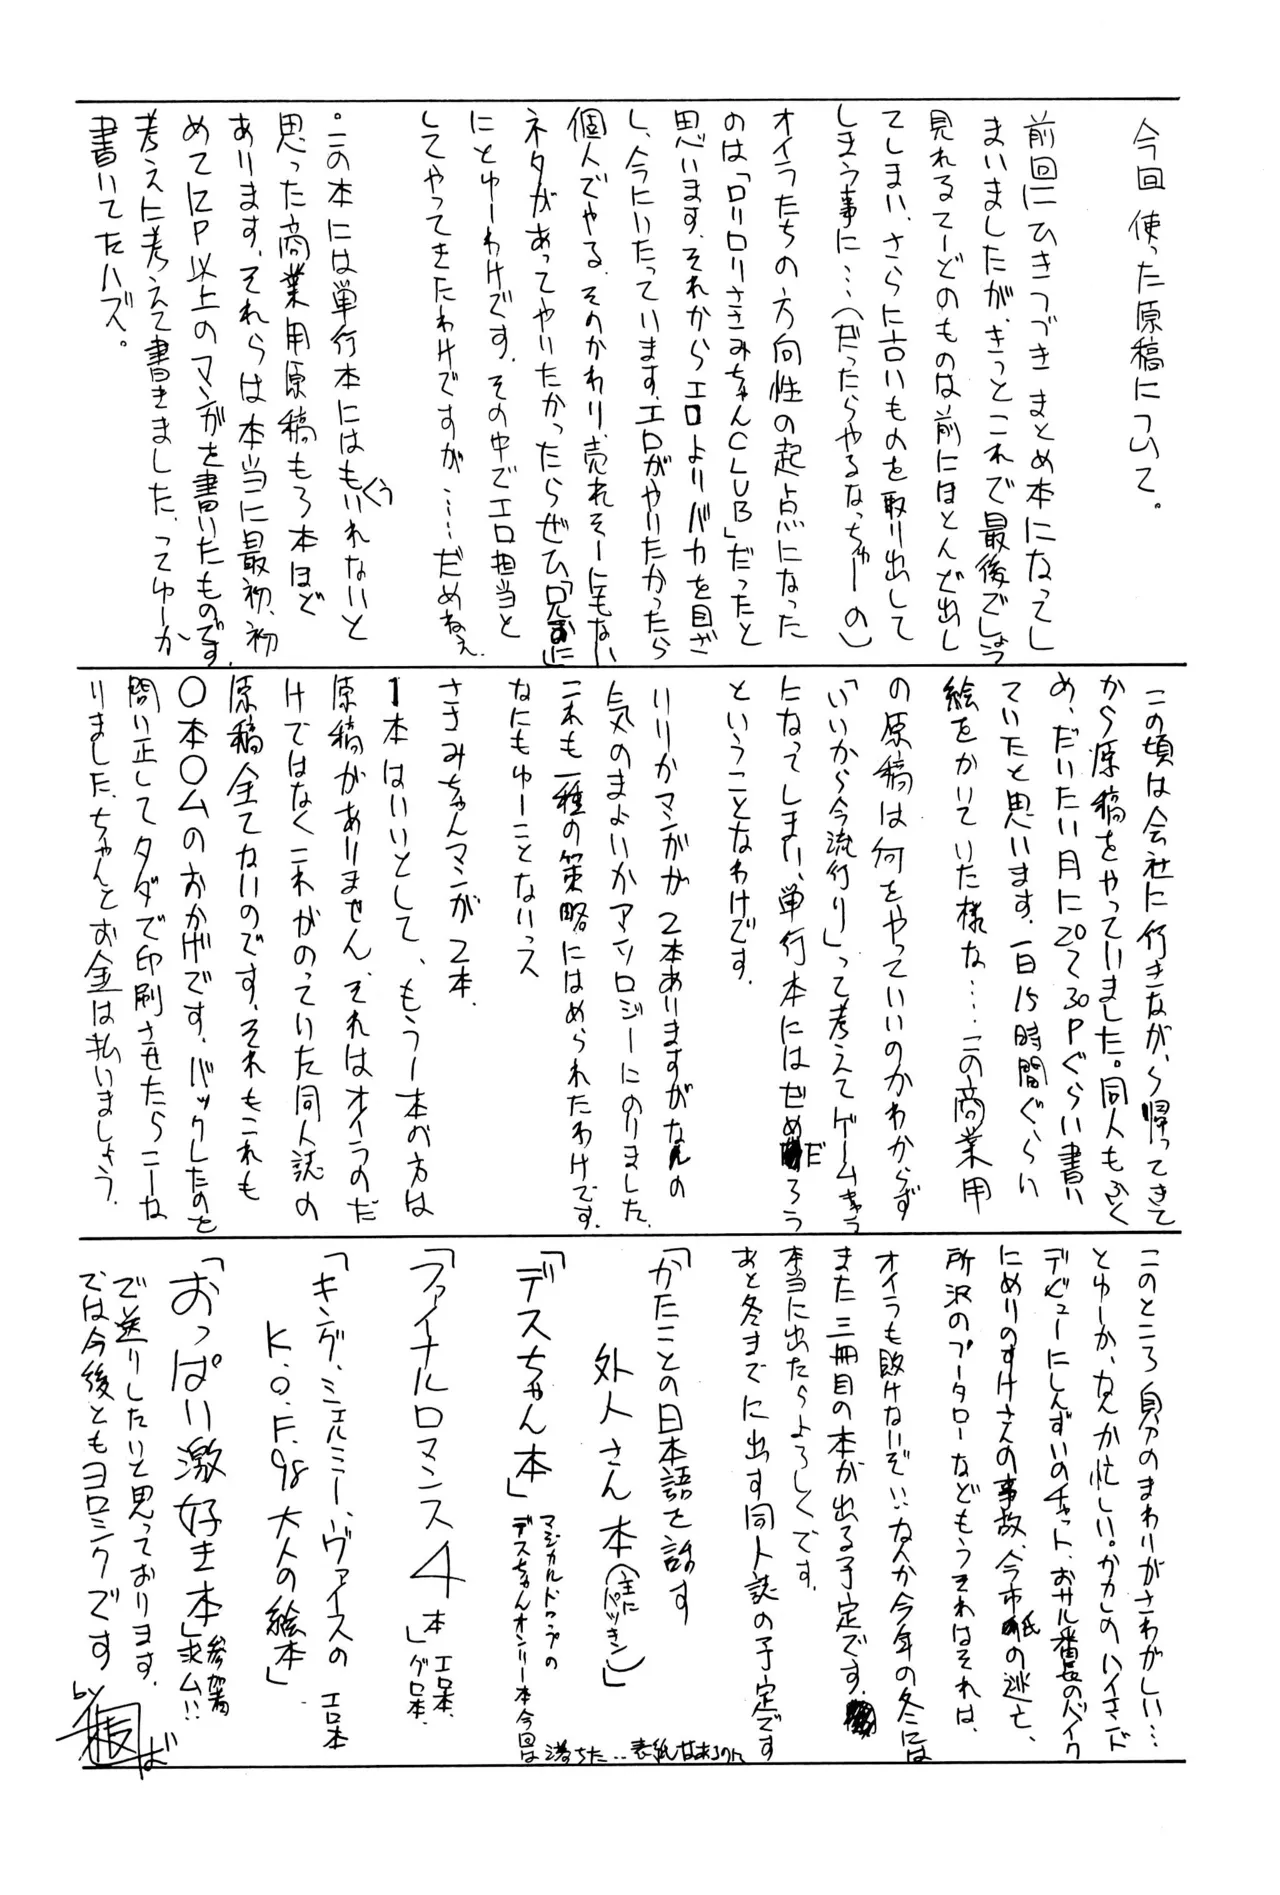 今回使った原稿について。
前回にひきつづきまとめ本になってし
まいましたが、きっとこれで最後でしょう
見れるてーどのものは前にほとんど出し
てしまい、さらに古いものを取り出して
しまう事に…(だったらやるなっちゅーの)
オイラたちの方向性の起点になった
のは「ロリロリささみちゃんCLUB」だったと
思います、それからエロよりバカを目ざ
し、今にいたっています、エロがやりたかったら
個人でやる、そのかわり売れそーにもない
ネタがあってやりたかったらぜひ「兄 に」
にとゆーわけです、その中でエロ担当と
してやってきたわけですが……だめねぇ
・この本には単行本にはもういれないと
思った商業用原稿もろ本ほど
あります、それらは本当に最初、初
めて12P以上のマンガを書いたものです、
考えに考えて書きました、ってゆーか
書いてたハズ。
この頃は会社に行きながら帰ってきて
から原稿をやっていました。同人もふく
め、だいたい月に20〜30Pぐらい書い
ていたと思います、一日15時間ぐらい
絵をかいていた様な……この商業用
の原稿は何をやっていいのかわからず
「いいから今流行り」って考えてゲームキャラ
になってしまい、単行本にはぜめだろう
ということなわけです、
いりかマンガが2本ありますがなんの
気のまよいかアンソロジーにのりました、
これも一種の策略にはめられたわけです、
なにもゆーことないっス
ささみちゃんマンガ2本、
1本はいいとして、もう一本の方は
原稿がありません、それはオイラのだ
けではなくこれがのっていた同人誌の
原稿全てないのです、それもこれも
〇本〇ムのおかげです、バックしたのと
問い正してタダで印刷させたらこーな
りました、ちゃんとお金は払いましょう、
このところ自分のまわりがさわがしい…
とゆーか、なんか忙しい。かかしのハイエンド
デビューにしんずいのチャット、おサル番長のバイク
にめりのすけさんの事故、今市 の逃亡、
所沢のプータローなどもうそれはそれは、
オイラも敗けないぞい:なんか今年の冬には
また三冊目の本が出る予定です、
本当に出たらよろしくです、
あと冬までに出す同人誌の予定です
「かたことの日本語を話す
外人さん本(主にパツキン)」
「デスちゃん本」マジカルドロップの
デスちゃんオンリー本今回は落ちた‥表紙はあるのに
「ファイナルロマンス4本」エロ本、
グロ本、
「キング、シェルミー、ヴァイスの エロ本
K.O.F.98大人の絵本」
「おっぱい激好き本」参加者
求ム!!
で送りしたいと思っております、
では今後ともヨロシクです
by